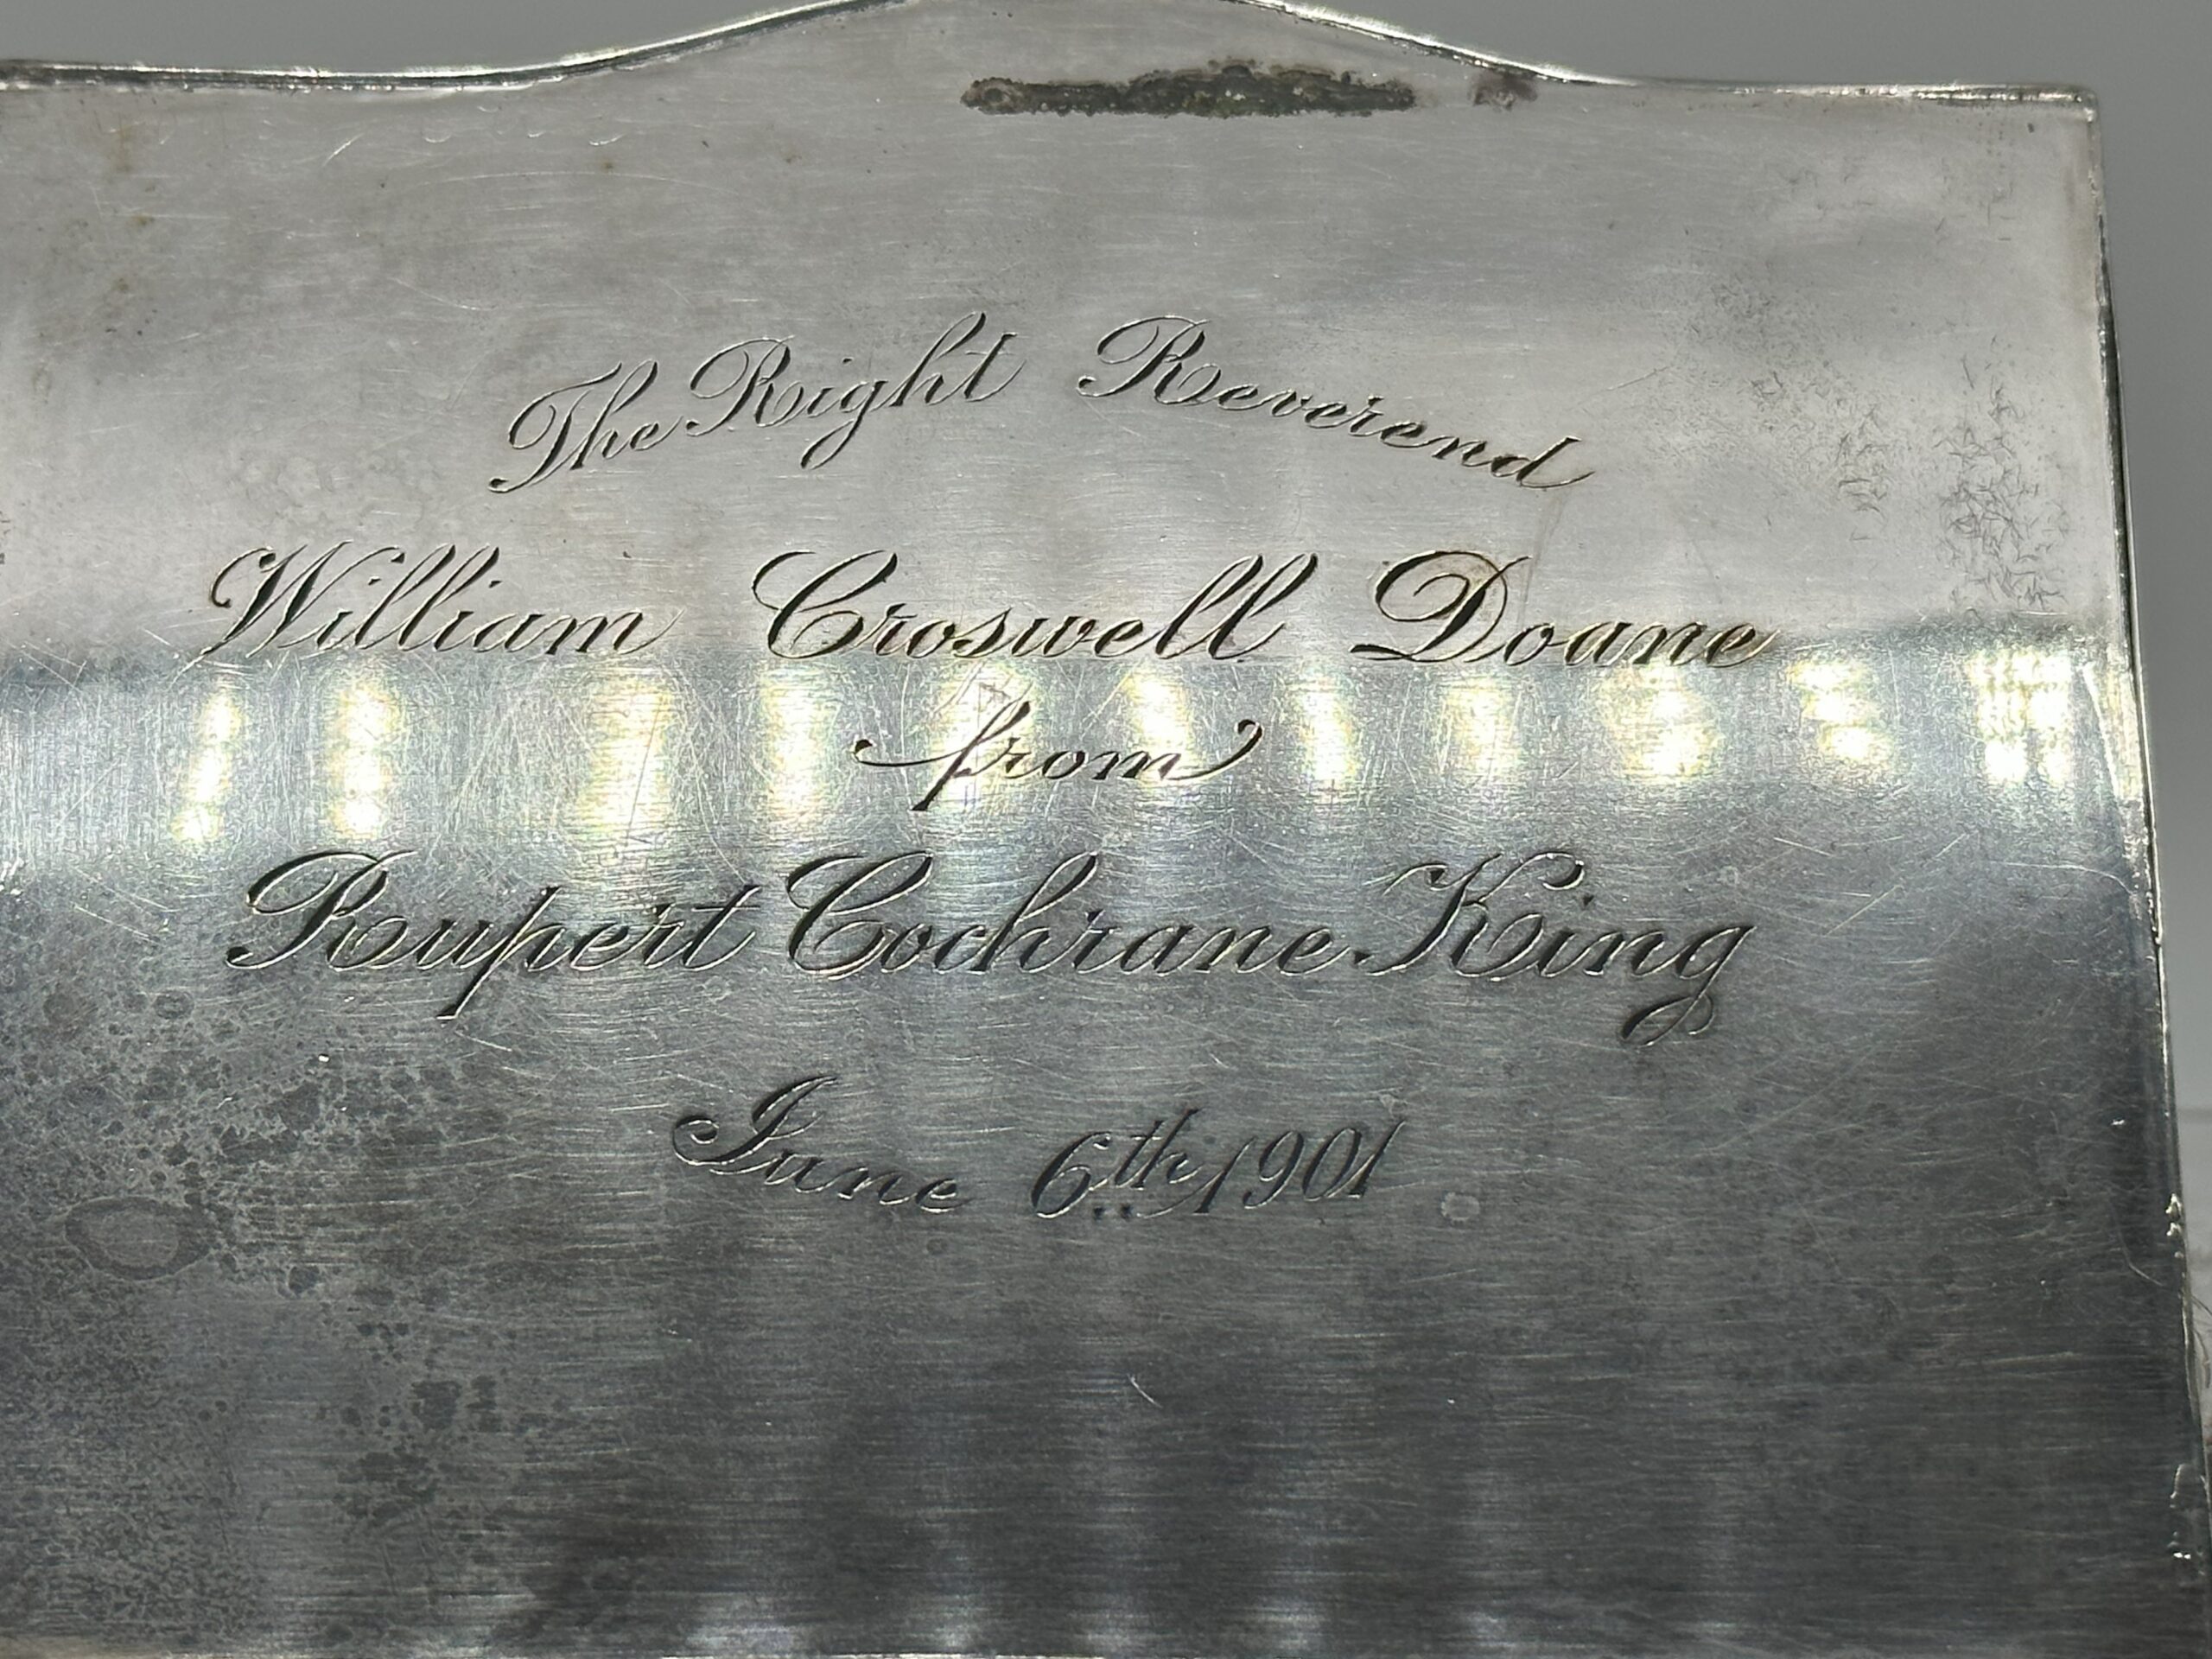 The Right Reverend
William Croswell Doane
from
Rupert Cochrane King
June 6th 1901